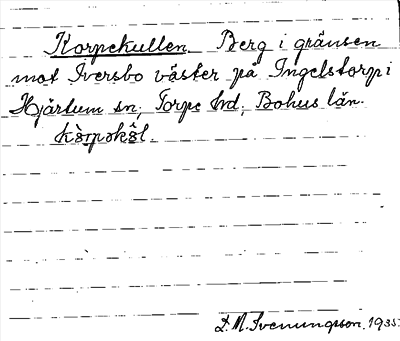 Korpekullen Berg i gränsen
mot Iversbo väster på Ingelstorp i
Hjärtum sn, Torpe hrd, Bohus län.
kòrpəkə̂l.
D. M. Svenungsson. 1935.